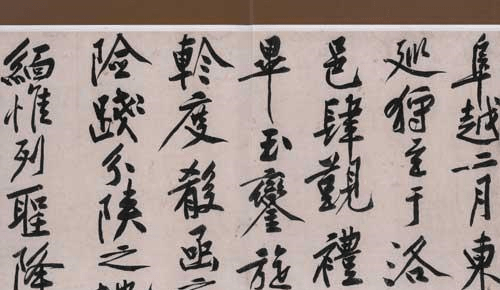 阜越二月東
巡狩至于洛
邑肆覲禮
畢玉鑾旋
軫度殽函
險踐分陝之
緬惟列聖降